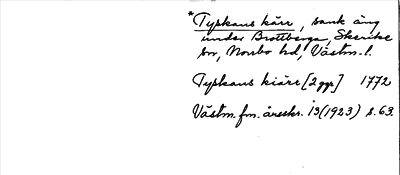 *Tyskans kärr, sank äng
under Brottberga, Skerike
sn, Norrbo hd, Västm. l.
Tyskans kiärr [2 ggr] 1772
Västm. fm. årsskr. 13 (1923) s. 63.